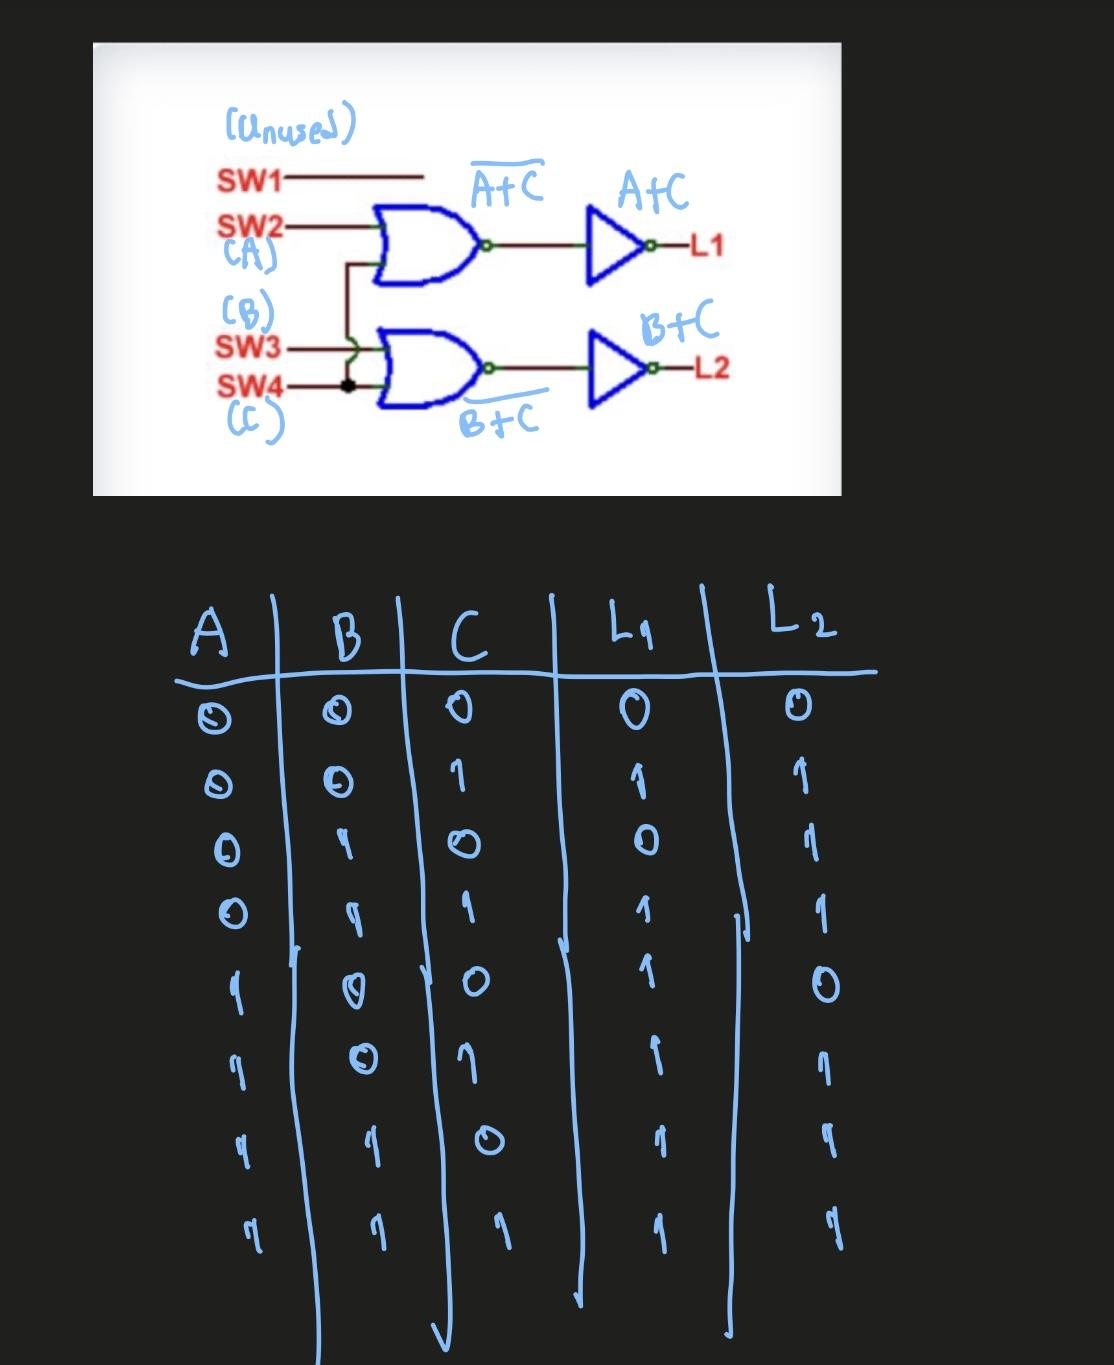 (Unused)
SW1
SW2
(A)
(B)
SW3
SW4
(C)
$\overline{A+C}$
A+C
L1
$\overline{B+C}$
B+C
L2
A B C L1 L2
0 0 0 0 0
0 0 1 1 1
0 1 0 0 1
0 1 1 1 1
1 0 0 1 0
1 0 1 1 1
1 1 0 1 1
1 1 1 1 1